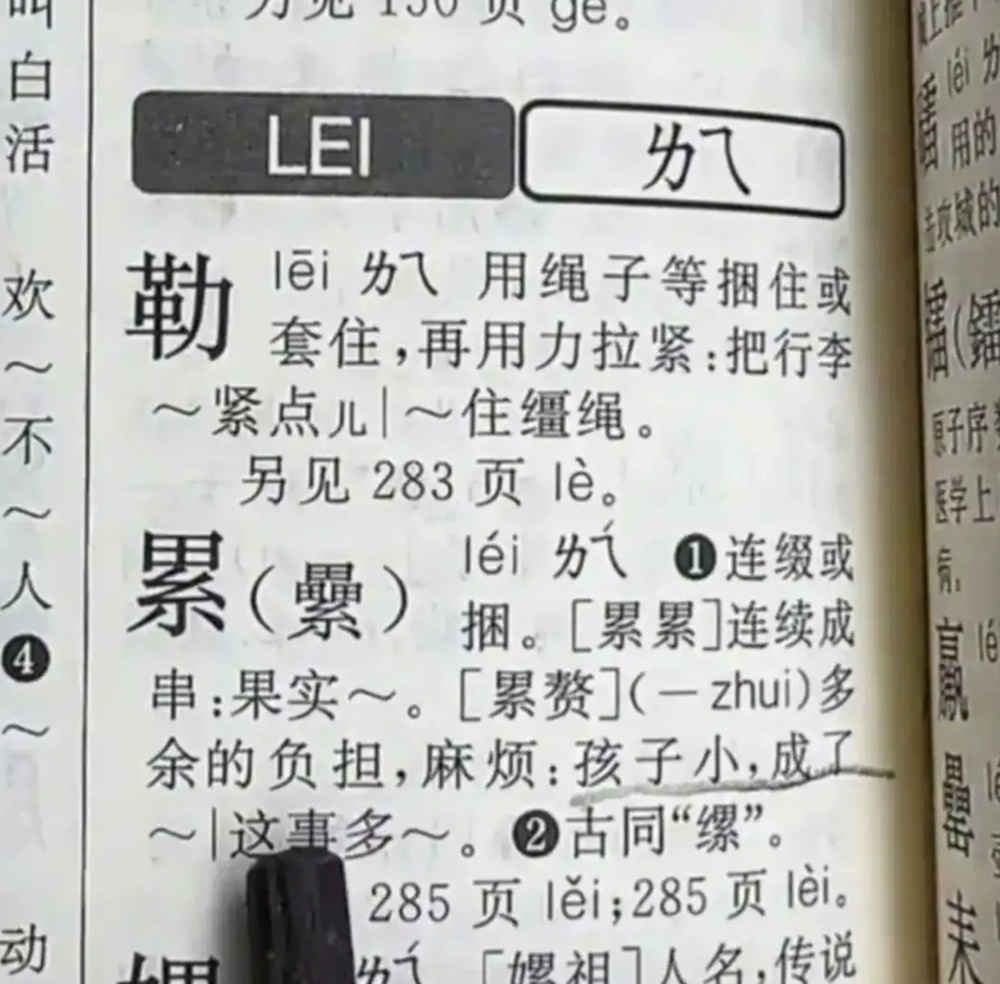 白
活
欢
～
不
～
人
❹
～
动
另见 150 页 gé。
LEI ㄌㄟ
勒 lēi ㄌㄟ 用绳子等捆住或
套住，再用力拉紧：把行李
～紧点儿|～住缰绳。
另见 283 页 lè。
累（纍） léi ㄌㄟˊ ❶连缀或
捆。［累累］连续成
串：果实～。［累赘］(－zhui)多
余的负担，麻烦：孩子小，成了
～|这事多～。❷古同“缧”。
285 页 lěi；285 页 lèi。
ㄌㄟˊ ［嫘祖］人名，传说
léi
用的
击攻城的
镭（鐳
原子序
医学上
病。
羸 lé
罍
耒